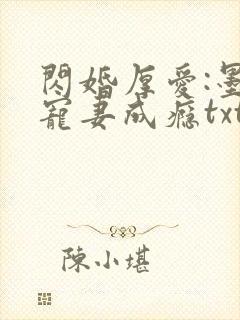 閃婚厚愛:墨
寵妻成癮txt
陳小堪